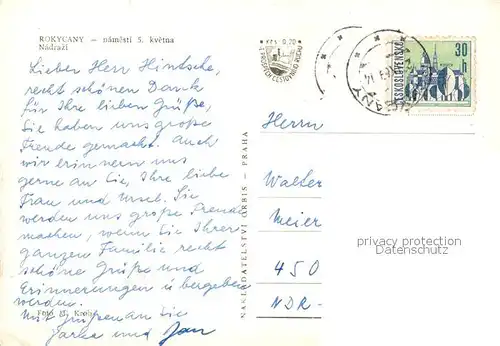 ROKYCANY — náměstí 5. května
Nádraží
Lieber Herr Hintsche,
recht schönen Dank
für Ihre lieben Grüße,
Sie haben uns große
Freude gemacht. Auch
wir erinnern uns
gerne an Sie, Ihre liebe
Frau und Ursel. Sie
werden uns große Freude
machen, wenn Sie Ihrer
ganzen Familie recht
schöne Grüße und
Erinnerungen übergeben
werden.
Foto M. Krob
Mit Grüßen an Sie
Jarka und Jan
NAKLADATELSTVÍ ORBIS — PRAHA
Kčs 0,70
30 h
ČESKOSLOVENSKO
Herrn
Walter
Meier
450
NDR-
privacy protection
Datenschutz